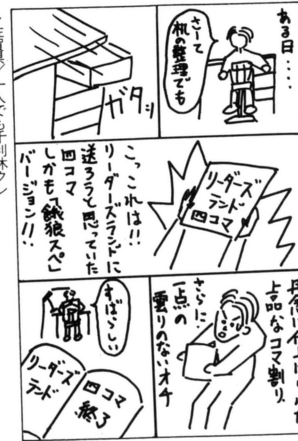 ある日・・・・
さーて
机の整理でも
ガタッ
リーダーズ
ランド
四コマ
こっこれは!!
リーダーズランドに
送ろうと思っていた
四コマ
しかも「餓狼スペ」
バージョン!!
上品なコマ割り
さらに
一点の
曇りのないオチ
すばらしい
四コマ
終了
リーダーズ
ランド